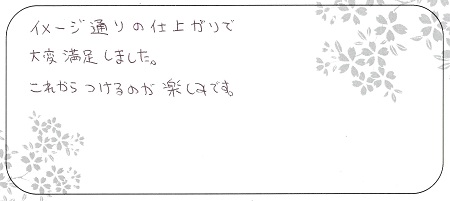 イメージ通りの仕上がりで
大変満足しました。
これからつけるのが楽しみです。